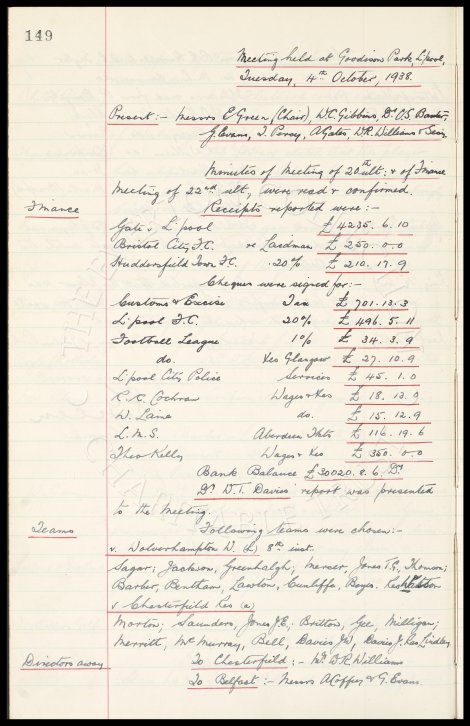 149
Meeting held at Goodison Park, L'pool,
Tuesday, 4th October, 1938.
Present:- Messrs E. Green, (Chair), W.C. Gibbins, Dr. C.S. Baxter,
J. Evans, T. Percy, A. Gates, W.R. Williams & Secy.
Minutes of Meeting of 20th ult: & of Finance
Meeting of 22nd ult, were read & confirmed.
Finance Receipts reported were:-
Gate v. L'pool £4235. 6. 10
Bristol City F.C. re Laidman £250. 0. 0
Huddersfield Town F.C. 20% £210. 17. 9
Cheques were signed for:-
Customs & Excise Tax £701. 13. 3
L'pool F.C. 20% £496. 5. 11
Football League 1% £34. 3. 9
do. Xes Glasgow £27. 10. 9
L'pool City Police Services £45. 1. 0
R.C. Cochran Wages & Xes £18. 13. 0
W. Laine do. £15. 12. 9
L.M.S. Aberdeen Tkts £116. 19. 6
Theo Kelly Wages & Xes £350. 0. 0
Bank Balance £30020. 8. 6. Dr
Dr. D.T. Davies report was presented
to the Meeting.
Teams Following teams were chosen:-
v. Wolverhampton W. (L) 8th inst.
Sagar; Jackson, Greenhalgh; Mercer, Jones T.G., Thomson;
Barber, Bentham, Lawton, Cunliffe, Boyes. Res Watson
v Chesterfield Res (a)
Morton; Saunders, Jones J.E; Britton, Gee, Milligan;
Merritt, McMurray, Bell, Davies J.W, Davies J. Res Lindley
Directors away To Chesterfield:- Mr. W.R. Williams
To Belfast:- Messrs A. Coffey & G. Evans.